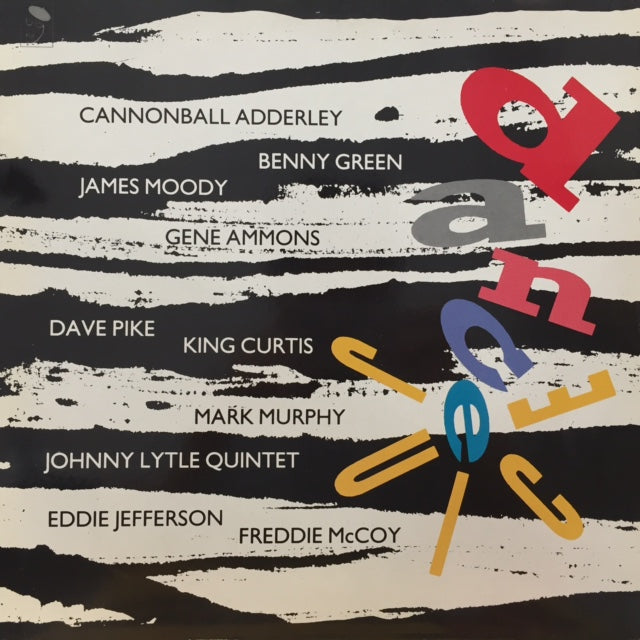 CANNONBALL ADDERLEY
BENNY GREEN
JAMES MOODY
GENE AMMONS
DAVE PIKE
KING CURTIS
MARK MURPHY
JOHNNY LYTLE QUINTET
EDDIE JEFFERSON
FREDDIE McCOY
dance
JUICE